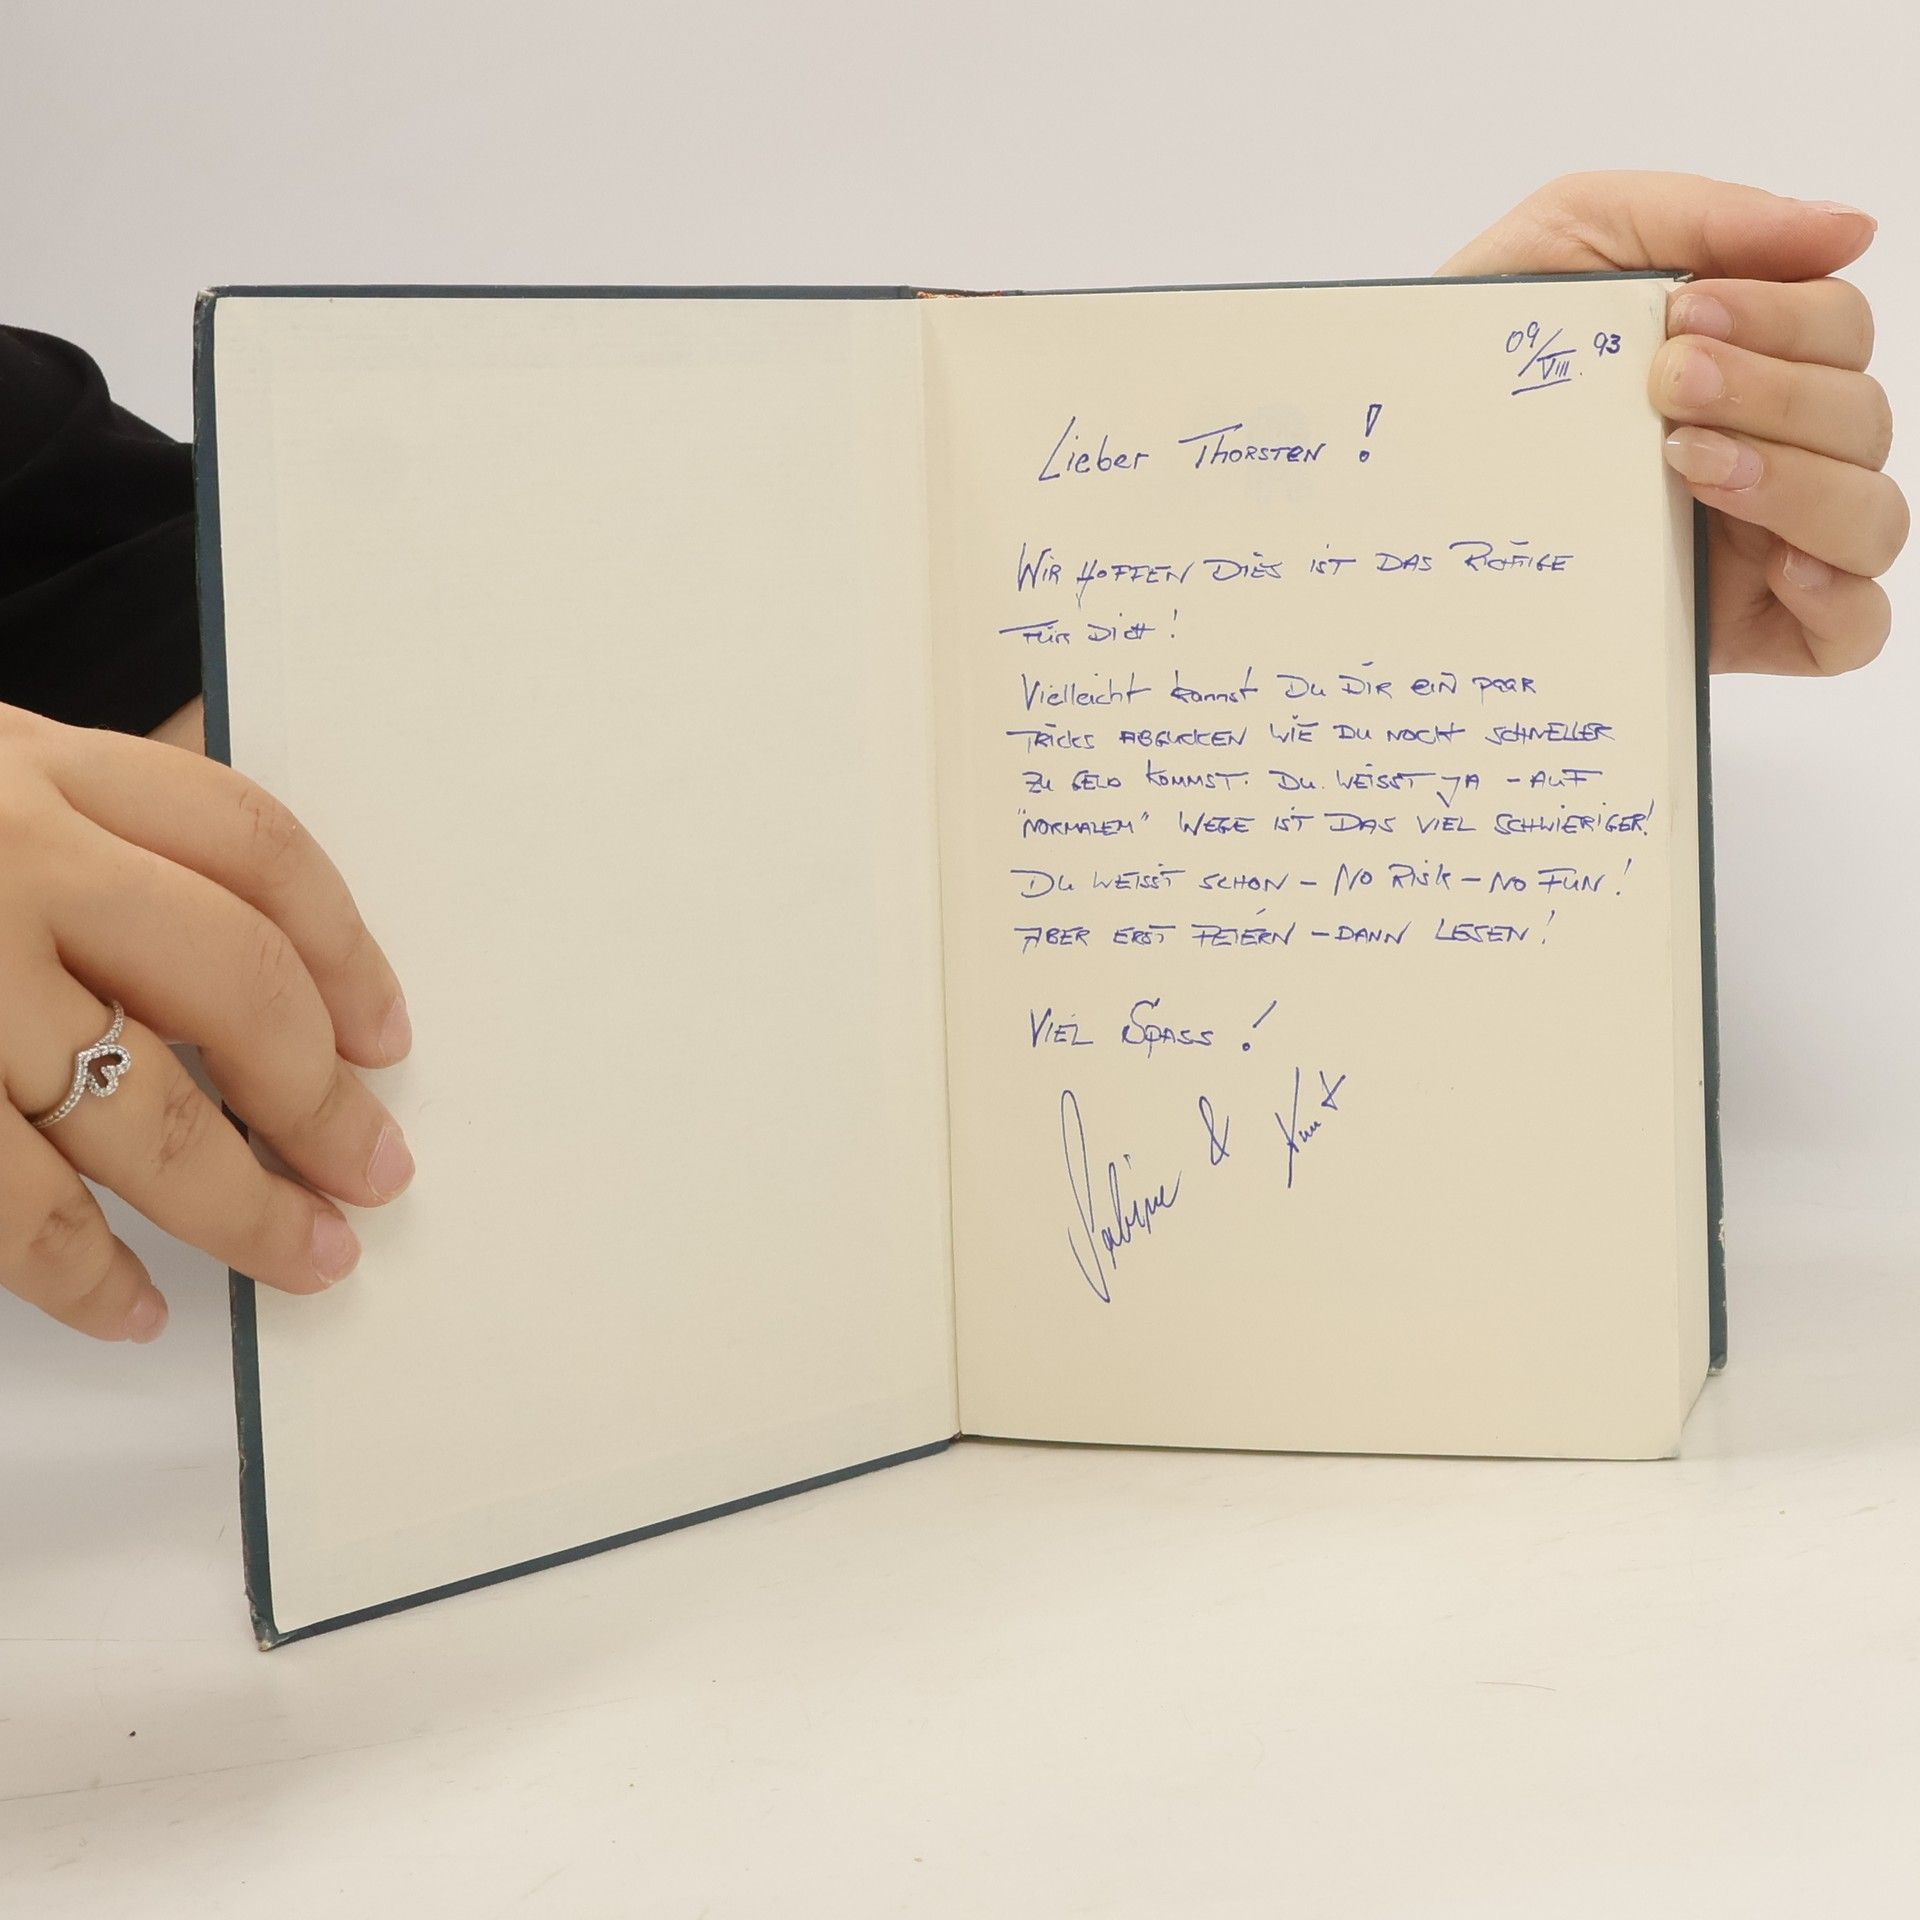 09/VIII. 93
Lieber Thorsten!
Wir hoffen dies ist das Richtige
für Dich!
Vielleicht kannst Du Dir ein paar
Tricks abgucken wie Du noch schneller
zu Geld kommst. Du weisst ja - auf
"normalem" Wege ist das viel schwieriger!
Du weisst schon - No Risk - No Fun!
Aber erst feiern - dann lesen!
Viel Spass!
Sabine & Knut